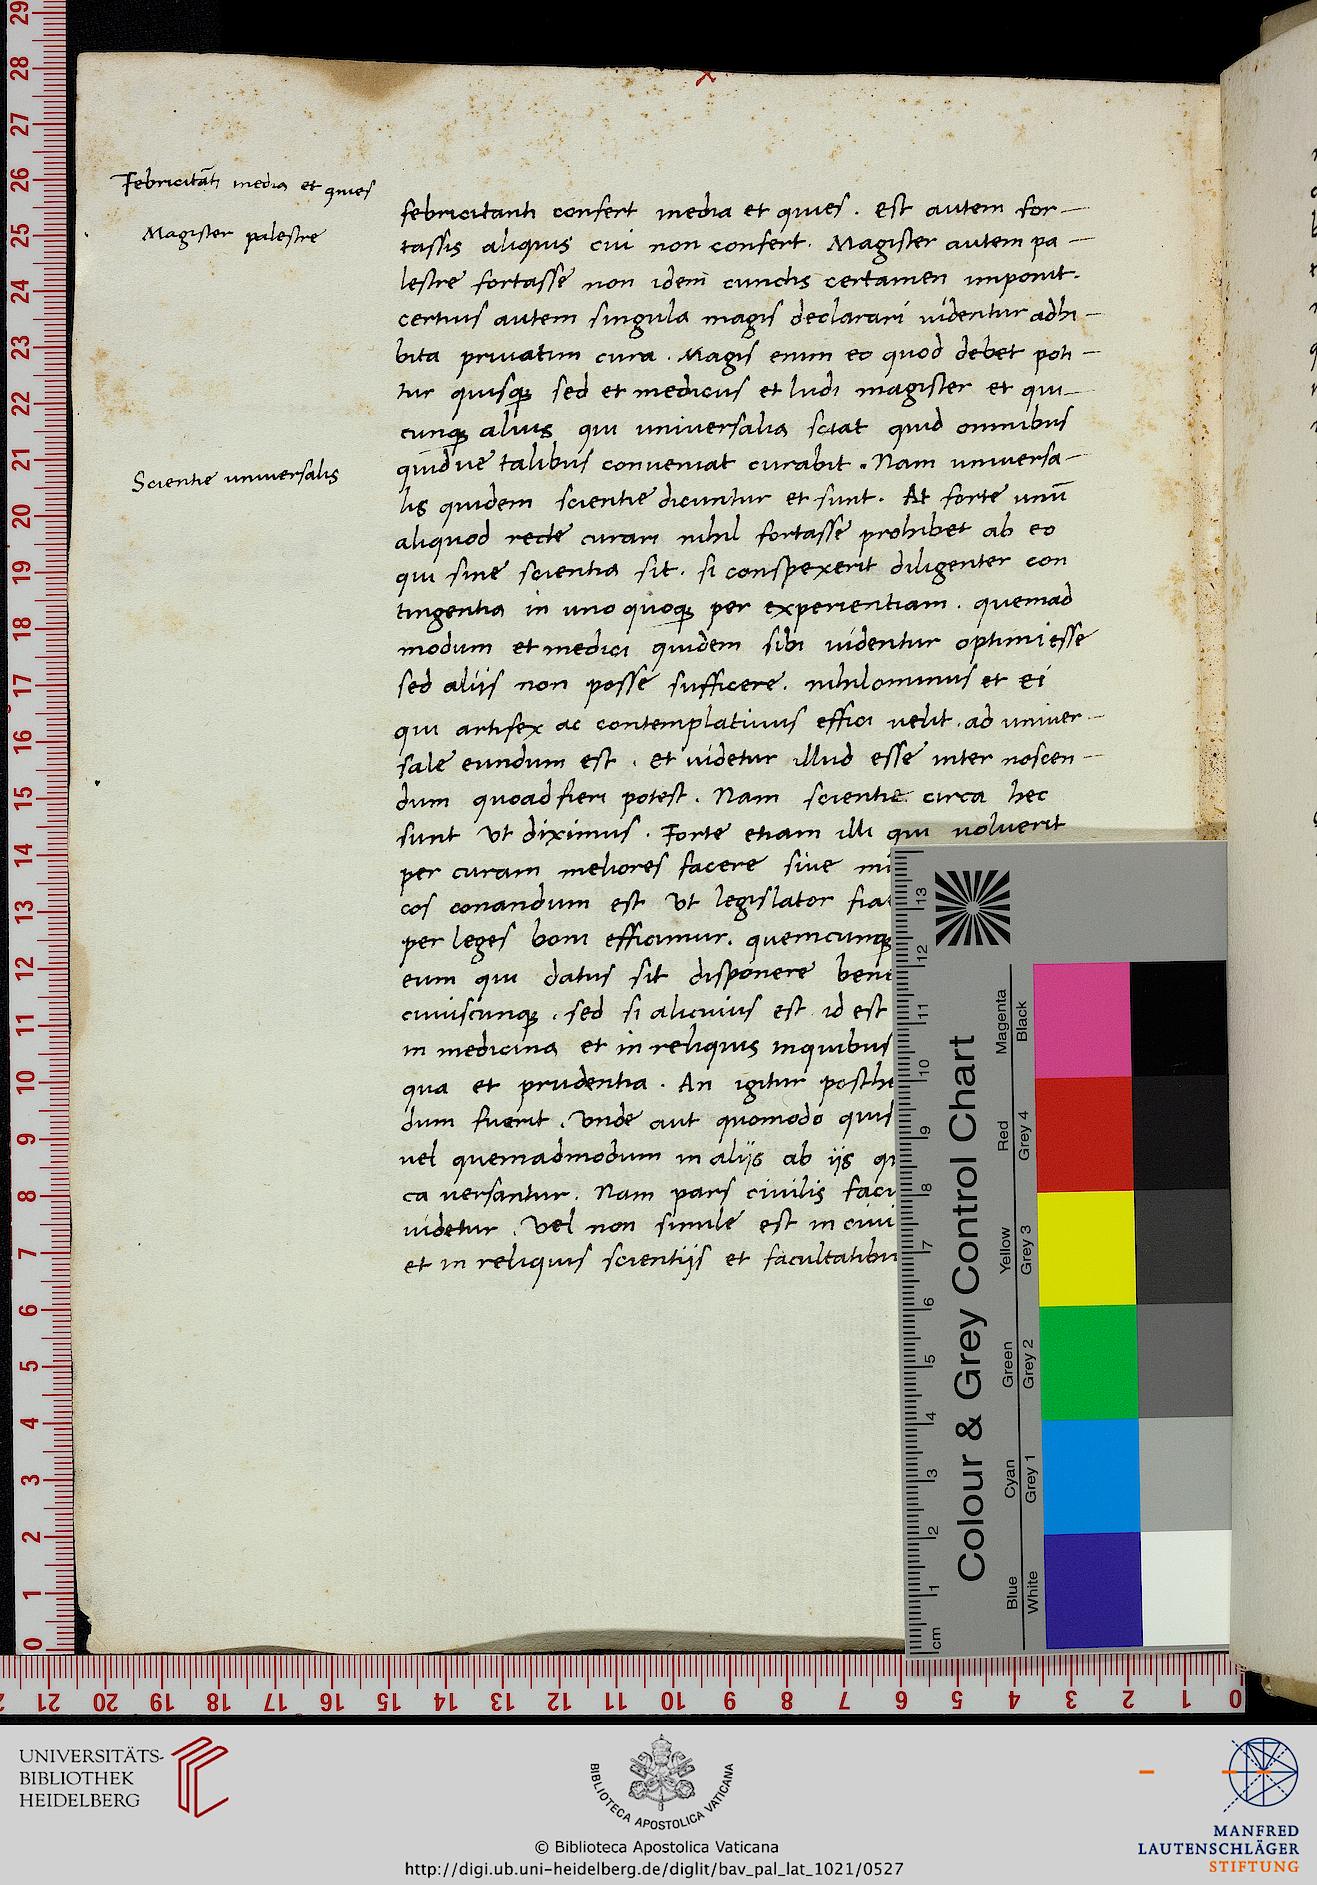 Febricitāti media et quies
Magister palestre
febricitanti confert media et quies . est autem for-
tassis aliquis cui non confert . Magister autem pa-
lestre fortasse non idem cunctis certamen imponit.
certius autem singula magis declarari videntur adhi-
bita privatim cura . Magis enim eo quod debet poti-
tur quisq; sed et medicus et ludi magister et qui-
cunq; alius qui universalia sciat quid omnibus
quid ve talibus conveniat curabit . Nam universa-
Scientie universalis
lis quidem scientie dicuntur et sunt . At forte unū
aliquod recte curari nihil fortasse prohibet ab eo
qui sine scientia sit . si conspexerit diligenter con
tingentia in uno quoq; per experientiam . quemad
modum et medici quidem sibi videntur optimi esse
sed aliis non posse sufficere . nihilominus et ei
qui artifex ac contemplativus effici velit . ad univer-
sale eundum est . et videtur illud esse inter noscen-
dum quoad fieri potest . Nam scientie circa hec
sunt ut diximus . Forte etiam illi qui voluerit
per curam meliores facere sive
cos conandum est ut legislator
per leges boni efficimur . quemcunq;
eum qui datus sit disponere
cuiuscunq; . sed si alicuius est id est
in medicina et in reliquis in quibus
qua et prudentia . An igitur
dum fuerit . Unde aut quomodo
vel quemadmodum in aliis ab iis
ca versantur . Nam pars civilis
videtur . Vel non simile est in
et in reliquis scientiis et
29
28
27
26
25
24
23
22
21
20
19
18
17
16
15
14
13
12
11
10
9
8
7
6
5
4
3
2
1
0
21 20 19 18 17 16 15 14 13 12 11 10 9 8 7 6 5 4 3 2 1 0
13
12
11
10
9
8
7
6
5
4
3
2
1
cm
Colour & Grey Control Chart
Blue Cyan Green Yellow Red Magenta
White Grey 1 Grey 2 Grey 3 Grey 4 Black
UNIVERSITÄTS-
BIBLIOTHEK
HEIDELBERG
BIBLIOTECA APOSTOLICA VATICANA
© Biblioteca Apostolica Vaticana
http://digi.ub.uni-heidelberg.de/diglit/bav_pal_lat_1021/0527
MANFRED
LAUTENSCHLÄGER
STIFTUNG